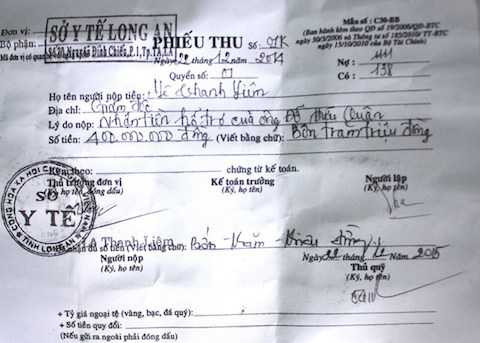 Đơn vị:
SỞ Y TẾ LONG AN
Bộ phận:
Số 70, Nguyễn Đình Chiểu, P.1, Tp.TA,LA
Mã đơn vị có quan
PHIẾU THU Số: 01K
Mẫu số: C30-BB
(Ban hành kèm theo QĐ số 19/2006/QĐ-BTC
ngày 30/3/2006 và Thông tư số 185/2010/TT-BTC
ngày 15/10/2010 của Bộ Tài Chính)
Ngày tháng 12 năm
Quyển số: 01
Nợ:
Có: 138
Họ tên người nộp tiền: Lê Thanh Liêm
Địa chỉ: Giám đốc
Lý do nộp: Nhận tiền hổ trợ của ông Đỗ Hiếu Quận
Số tiền: 400.000.000 đồng (Viết bằng chữ): Bốn trăm triệu đồng
Kèm theo: chứng từ kế toán.
Thủ trưởng đơn vị
(Ký, họ tên, đóng dấu)
Kế toán trưởng
(Ký, họ tên)
Người lập
(Ký, họ tên)
CỘNG HÒA XÃ HỘI CHỦ NGHĨA VIỆT NAM
SỞ
Y TẾ
TỈNH LONG AN
Lê Thanh Liêm
nhận đủ số tiền (Viết bằng chữ): Bốn trăm triệu đồng
Người nộp
(Ký, họ tên)
Ngày tháng Năm 2015
Thủ quỹ
(Ký, họ tên)
+ Tỷ giá ngoại tệ (vàng, bạc, đá quý):
+ Số tiền quy đổi:
(Nếu gửi ra ngoài phải đóng dấu)